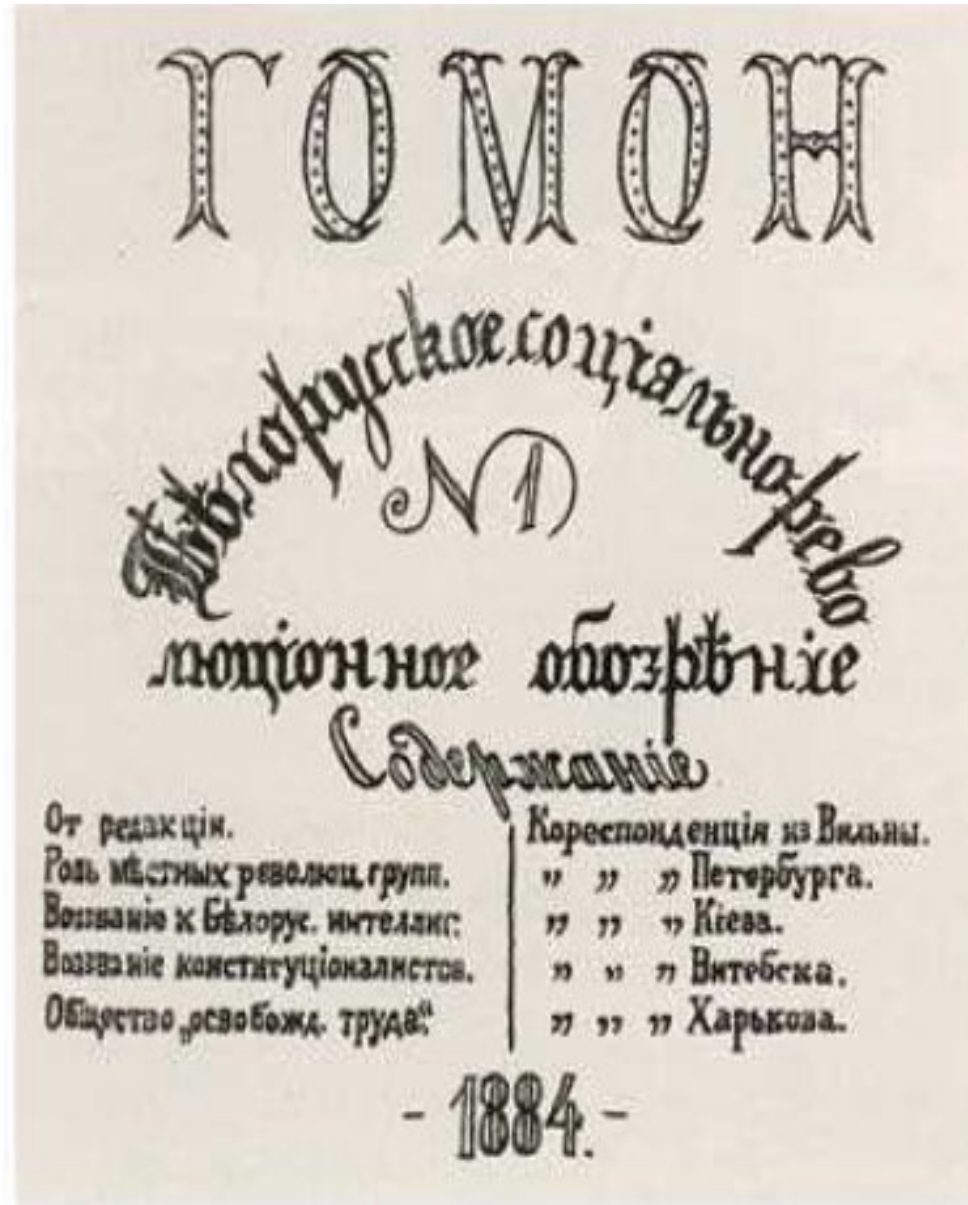 ГОМОН
Бѣлорусское соціяльно-рево
N 1
люціонное обозрѣніе
Содержаніе
От редакціи.
Роль мѣстных революц. групп.
Воззваніе к Бѣлорус. интеллиг.
Воззваніе конституціоналистов.
Общество „освобожд. труда".
Кореспонденція из Вильны.
„ „ „ Петербурга.
„ „ „ Кіева.
„ „ „ Витебска.
„ „ „ Харькова.
- 1884. -